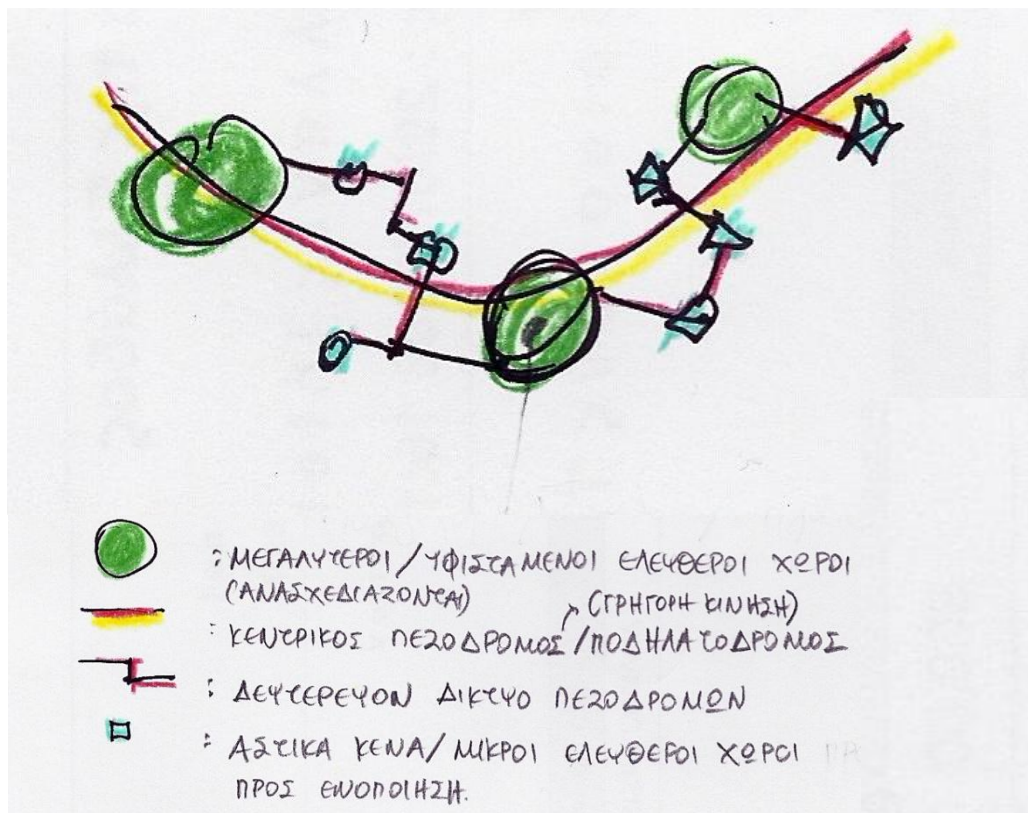 : ΜΕΓΑΛΥΤΕΡΟΙ / ΥΦΙΣΤΑΜΕΝΟΙ ΕΛΕΥΘΕΡΟΙ ΧΩΡΟΙ
(ΑΝΑΣΧΕΔΙΑΖΟΝΤΑΙ)
(ΓΡΗΓΟΡΗ ΚΙΝΗΣΗ)
: ΚΕΝΤΡΙΚΟΣ ΠΕΖΟΔΡΟΜΟΣ / ΠΟΔΗΛΑΤΟΔΡΟΜΟΣ
: ΔΕΥΤΕΡΕΥΟΝ ΔΙΚΤΥΟ ΠΕΖΟΔΡΟΜΩΝ
: ΑΣΤΙΚΑ ΚΕΝΑ / ΜΙΚΡΟΙ ΕΛΕΥΘΕΡΟΙ ΧΩΡΟΙ
ΠΡΟΣ ΕΝΟΠΟΙΗΣΗ.